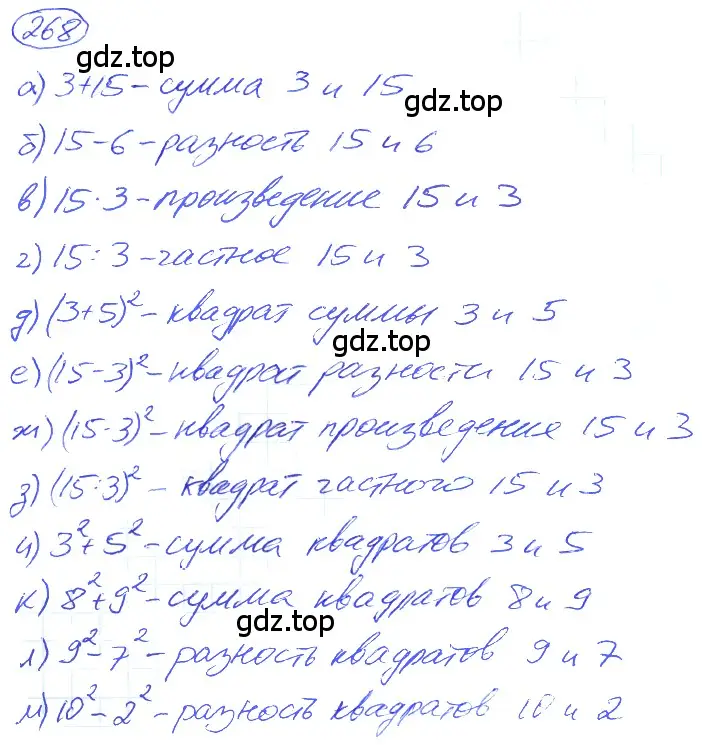 268
gdz.top
а) 3+15 - сумма 3 и 15
gdz.top
б) 15-6 - разность 15 и 6
в) 15·3 - произведение 15 и 3
г) 15:3 - частное 15 и 3
д) (3+5)² - квадрат суммы 3 и 5
gdz.top
е) (15-3)² - квадрат разности 15 и 3
ж) (15·3)² - квадрат произведение 15 и 3
з) (15:3)² - квадрат частного 15 и 3
и) 3²+5² - сумма квадратов 3 и 5
к) 8²+9² - сумма квадратов 8 и 9
gdz.top
л) 9²-7² - разность квадратов 9 и 7
м) 10²-2² - разность квадратов 10 и 2